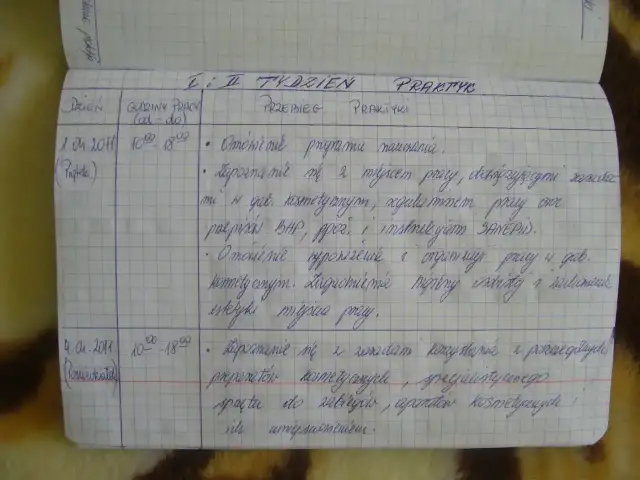 I i II TYDZIEŃ PRAKTYK
DZIEŃ
GODZINY PRACY
(od - do)
PRZEBIEG PRAKTYKI
1.04.2011
(Piątek)
10⁰⁰-18⁰⁰
• Omówienie programu nauczania.
• Zapoznanie się z miejscem pracy, obowiązującymi zasada-
mi w gab. kosmetycznym, regulaminem pracy oraz
przepisami BHP, ppoż. i instrukcjami SANEPID.
• Omówienie wyposażenia i organizacji pracy w gab.
kosmetycznym. Zagadnienia higieny osobistej i zachowania
estetyki miejsca pracy.
4.04.2011
(Poniedziałek)
10⁰⁰-18⁰⁰
• Zapoznanie się z zasadami korzystania z poszczególnych
preparatów kosmetycznych, specjalistycznego
sprzętu do zabiegów, aparatów kosmetycznych i
ich umiejscowieniem.